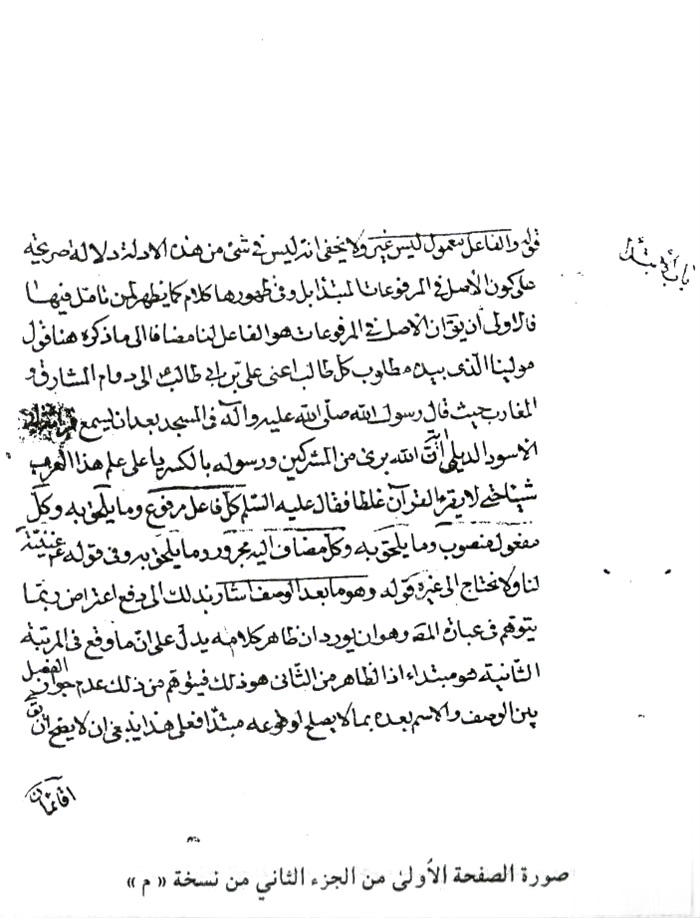 باب المبتدأ
قوله والفاعل معمول ليس غير ولا يخفى انه ليس فى شئ من هذه الادلة دلالة صريحة
على كون الأصل فى المرفوعات المبتدا بل وفى ظهورها كلام كما يظهر لمن تامل فيها
فالاولى أن يق ان الاصل فى المرفوعات هو الفاعل لنا مضافا الى ما ذكره هنا قول
مولينا الذى بيده مطلوب كل طالب اعنى على بن ابى طالب الى دوام المشارق و
المغارب حيث قال رسول الله صلّى الله عليه وآله فى المسجد بعد ان يسمع
الاسود الديلى أنّ الله برئ من المشركين ورسوله بالكسر يا على علم هذا العرب
شيئا حتى لا يقرء القرآن غلطا فقال عليه السّلم كل فاعل مرفوع وما يلحق به وكلّ
مفعول منصوب وما يلحق به وكل مضاف اليه مجرور وما يلحق به وفى قوله ع غنية
لنا ولا نحتاج الى غيره قوله وهو ما بعد الوصف اشار بذلك الى دفع اعتراض ربّما
يتوهم فى عبارة المص وهو ان يورد ان ظاهر كلامه يدلّ على انّ ما وقع فى المرتبة
الثانية هو مبتداء اذ الظاهر من الثّانى هو ذلك فيتوهم من ذلك عدم جواز الفصل
بين الوصف والاسم بعده بما لا يصلح لوقوعه مبتدّا فعلى هذا ينبغى ان لا يصح ان يق
اقائمان
صورة الصفحة الأولىٰ من الجزء الثاني من نسخة « م »